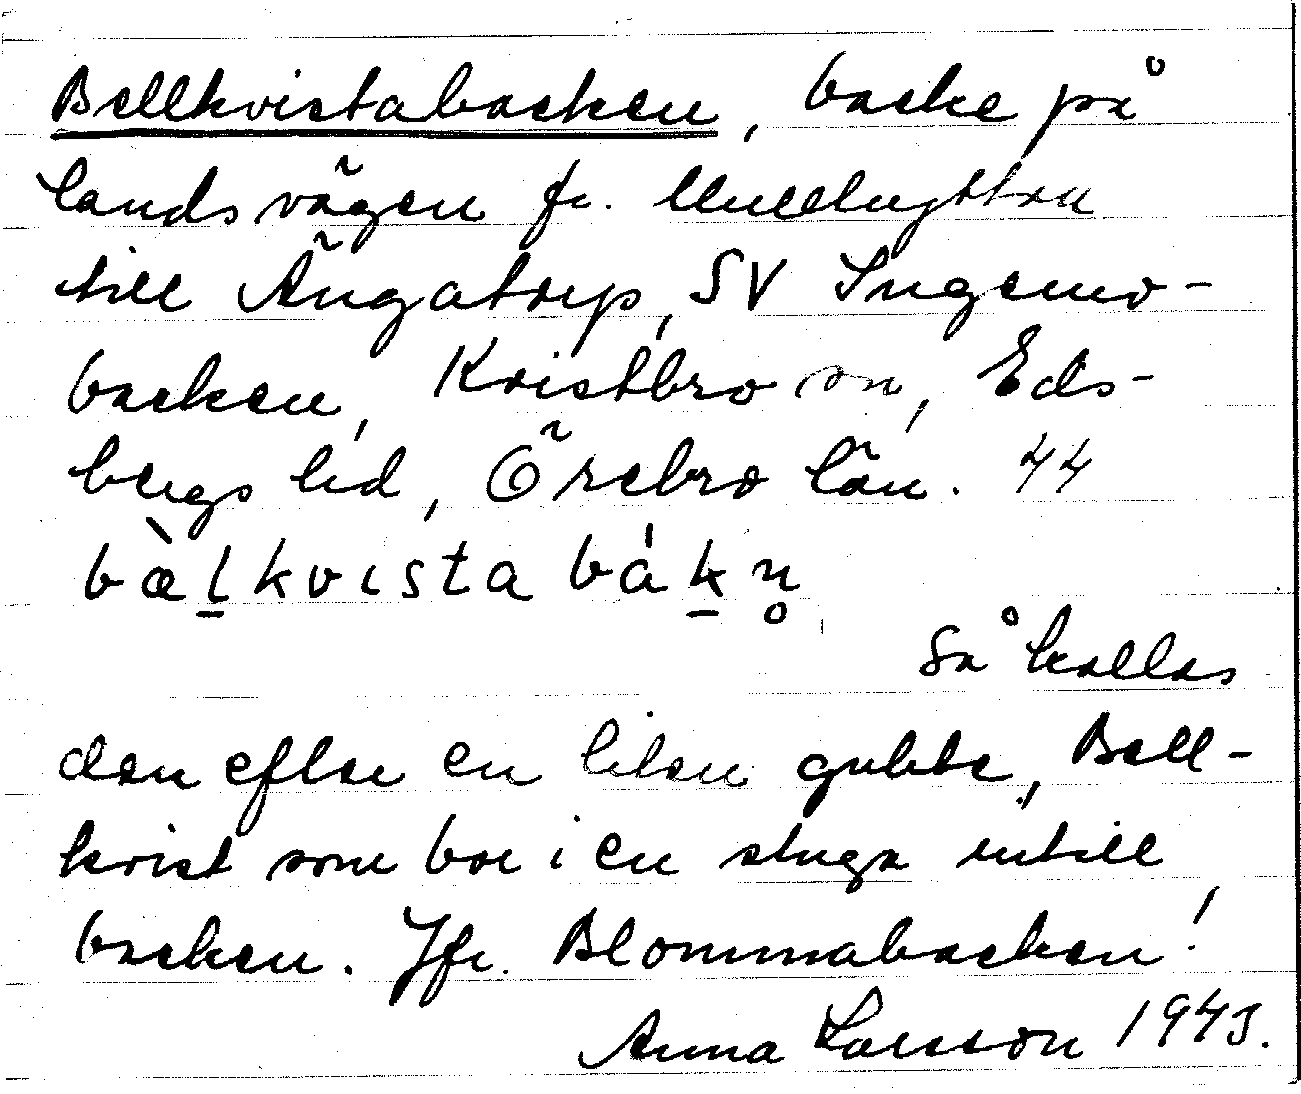 Bellkvistabacken, backe på
landsvägen fr. Mullhyttan
till Ängatorp, SV Ingemo-
backen, Kvistbro sn, Eds-
bergs hd, Örebro län. 44
bæ̀l̠kvɩsta bák̠n̥
Så kallas
den efter en liten gubbe, Bell-
kvist som bor i en stuga intill
backen. Jfr. Blommabacken!
Anna Larsson 1943.